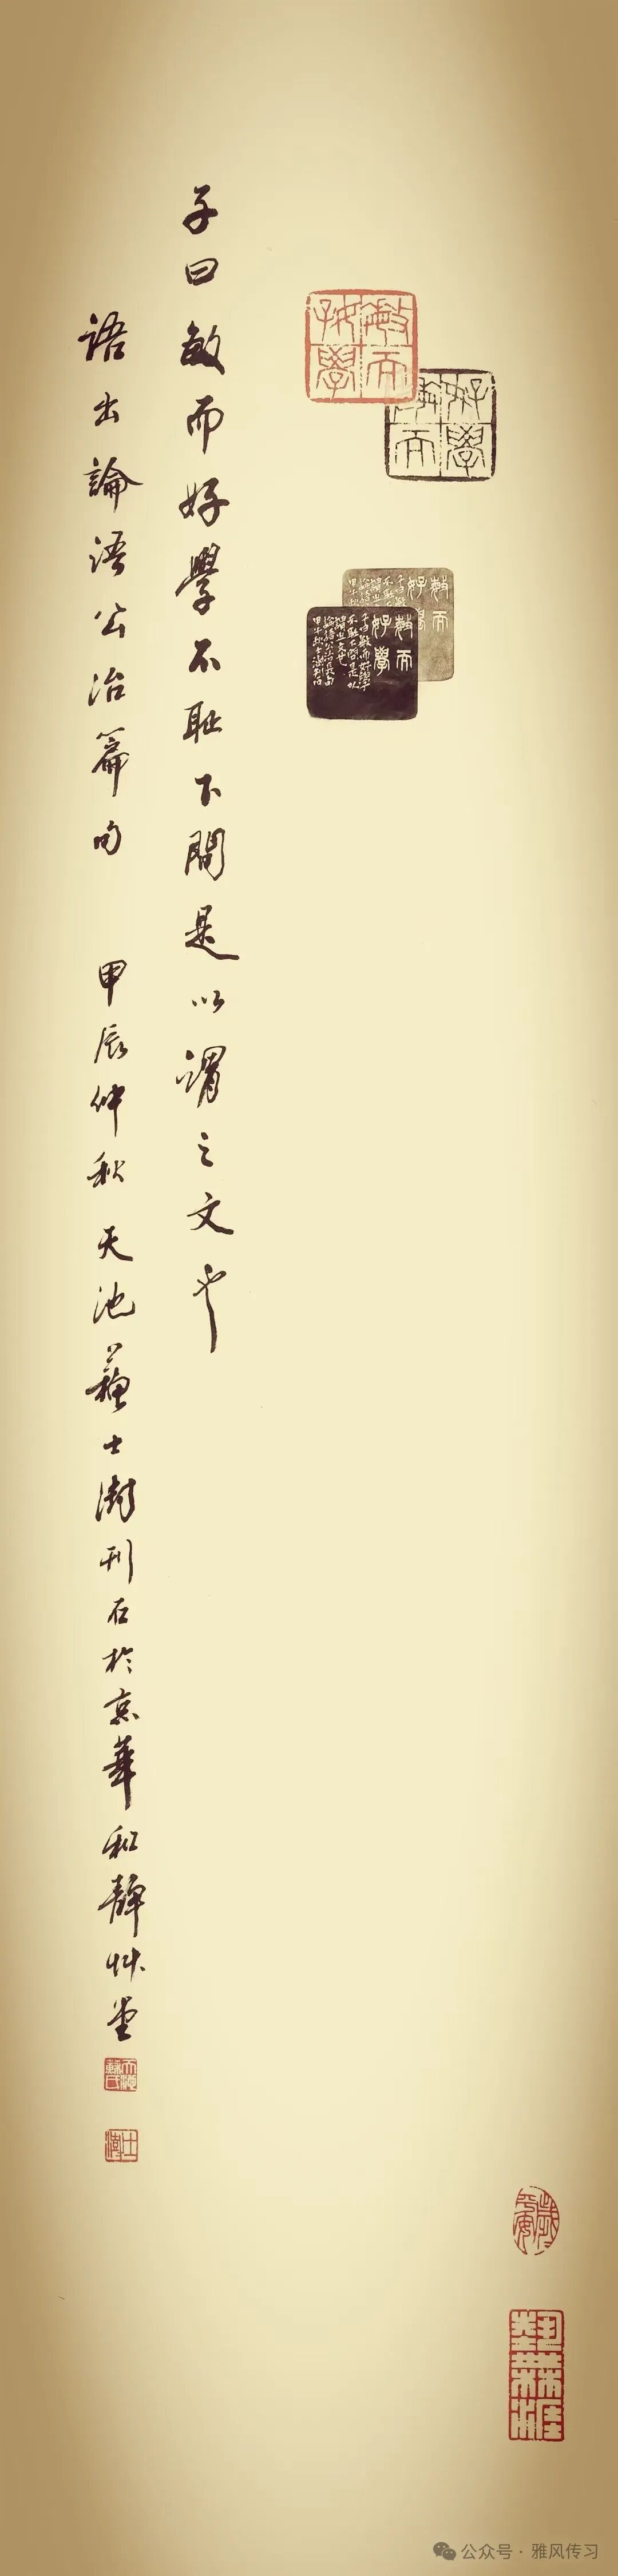 敏而
好學
敏而
好學
子曰敏而好學不耻下問是以謂之文也
語出論語公冶篇句 甲辰仲秋天池蘇士澍刊石於京華和靜艸堂
士澍
藝無涯
公众号·雅风传习